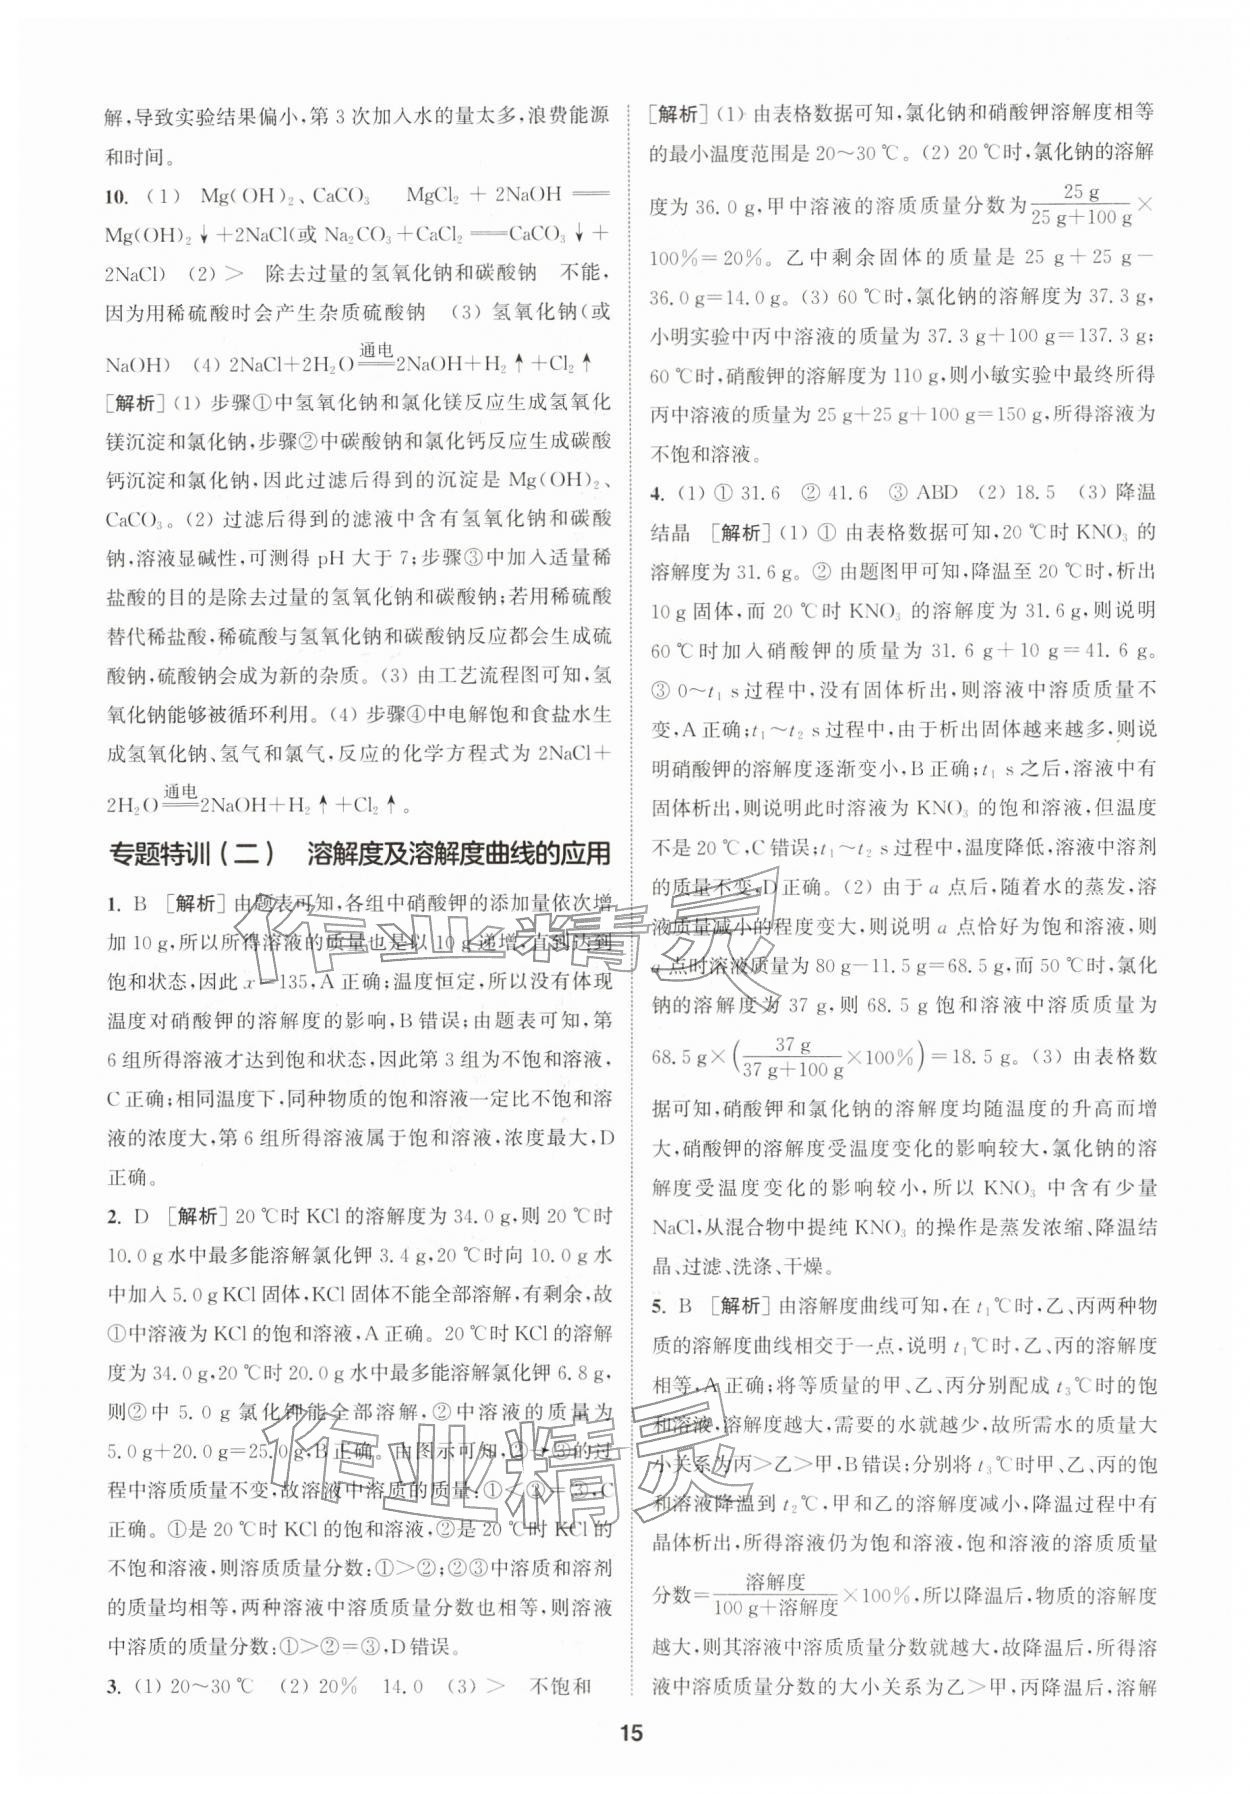 解,导致实验结果偏小,第 3 次加入水的量太多,浪费能源
和时间。
10. (1) Mg(OH)₂、CaCO₃ MgCl₂ + 2NaOH ══
Mg(OH)₂↓+2NaCl(或 Na₂CO₃+CaCl₂══CaCO₃↓+
2NaCl) (2) > 除去过量的氢氧化钠和碳酸钠 不能,
因为用稀硫酸时会产生杂质硫酸钠 (3) 氢氧化钠(或
NaOH) (4) 2NaCl+2H₂O 通电══ 2NaOH+H₂↑+Cl₂↑
[解析] (1) 步骤①中氢氧化钠和氯化镁反应生成氢氧化
镁沉淀和氯化钠,步骤②中碳酸钠和氯化钙反应生成碳酸
钙沉淀和氯化钠,因此过滤后得到的沉淀是 Mg(OH)₂、
CaCO₃。(2) 过滤后得到的滤液中含有氢氧化钠和碳酸
钠,溶液显碱性,可测得 pH 大于 7;步骤③中加入适量稀
盐酸的目的是除去过量的氢氧化钠和碳酸钠;若用稀硫酸
替代稀盐酸,稀硫酸与氢氧化钠和碳酸钠反应都会生成硫
酸钠,硫酸钠会成为新的杂质。(3) 由工艺流程图可知,氢
氧化钠能够被循环利用。(4) 步骤④中电解饱和食盐水生
成氢氧化钠、氢气和氯气,反应的化学方程式为 2NaCl+
2H₂O 通电══ 2NaOH+H₂↑+Cl₂↑。
专题特训(二) 溶解度及溶解度曲线的应用
1. B [解析] 由题表可知,各组中硝酸钾的添加量依次增
加 10 g,所以所得溶液的质量也是以 10 g 递增,直到达到
饱和状态,因此 x=135,A 正确;温度恒定,所以没有体现
温度对硝酸钾的溶解度的影响,B 错误;由题表可知,第
6 组所得溶液才达到饱和状态,因此第 3 组为不饱和溶液,
C 正确;相同温度下,同种物质的饱和溶液一定比不饱和溶
液的浓度大,第 6 组所得溶液属于饱和溶液,浓度最大,D
正确。
2. D [解析] 20 ℃时 KCl 的溶解度为 34.0 g,则 20 ℃时
10.0 g 水中最多能溶解氯化钾 3.4 g,20 ℃时向 10.0 g 水
中加入 5.0 g KCl 固体,KCl 固体不能全部溶解,有剩余,故
①中溶液为 KCl 的饱和溶液,A 正确。20 ℃时 KCl 的溶解
度为 34.0 g,20 ℃时 20.0 g 水中最多能溶解氯化钾 6.8 g,
则②中 5.0 g 氯化钾能全部溶解,②中溶液的质量为
5.0 g+20.0 g=25.0 g,B 正确。由图示可知,②→③的过
程中溶质质量不变,故溶液中溶质的质量:①<②=③,C
正确。①是 20 ℃时 KCl 的饱和溶液,②是 20 ℃时 KCl 的
不饱和溶液,则溶质质量分数:①>②;②③中溶质和溶剂
的质量均相等,两种溶液中溶质质量分数也相等,则溶液
中溶质的质量分数:①>②=③,D 错误。
3. (1) 20~30 ℃ (2) 20% 14.0 (3) > 不饱和
[解析] (1) 由表格数据可知,氯化钠和硝酸钾溶解度相等
的最小温度范围是 20~30 ℃。(2) 20 ℃时,氯化钠的溶解
度为 36.0 g,甲中溶液的溶质质量分数为 25 g/(25 g+100 g) ×
100%=20%。乙中剩余固体的质量是 25 g+25 g-
36.0 g=14.0 g。(3) 60 ℃时,氯化钠的溶解度为 37.3 g,
小明实验中丙中溶液的质量为 37.3 g+100 g=137.3 g;
60 ℃时,硝酸钾的溶解度为 110 g,则小敏实验中最终所得
丙中溶液的质量为 25 g+25 g+100 g=150 g,所得溶液为
不饱和溶液。
4. (1) ① 31.6 ② 41.6 ③ ABD (2) 18.5 (3) 降温
结晶 [解析] (1) ① 由表格数据可知,20 ℃时 KNO₃ 的
溶解度为 31.6 g。② 由题图甲可知,降温至 20 ℃时,析出
10 g 固体,而 20 ℃时 KNO₃ 的溶解度为 31.6 g,则说明
60 ℃时加入硝酸钾的质量为 31.6 g+10 g=41.6 g。
③ 0~t₁ s 过程中,没有固体析出,则溶液中溶质质量不
变,A 正确;t₁~t₂ s 过程中,由于析出固体越来越多,则说
明硝酸钾的溶解度逐渐变小,B 正确;t₁ s 之后,溶液中有
固体析出,则说明此时溶液为 KNO₃ 的饱和溶液,但温度
不是 20 ℃,C 错误;t₁~t₂ s 过程中,温度降低,溶液中溶剂
的质量不变,D 正确。(2) 由于 a 点后,随着水的蒸发,溶
液质量减小的程度变大,则说明 a 点恰好为饱和溶液,则
a 点时溶液质量为 80 g-11.5 g=68.5 g,而 50 ℃时,氯化
钠的溶解度为 37 g,则 68.5 g 饱和溶液中溶质质量为
68.5 g×(37 g/(37 g+100 g)×100%)=18.5 g。(3) 由表格数
据可知,硝酸钾和氯化钠的溶解度均随温度的升高而增
大,硝酸钾的溶解度受温度变化的影响较大,氯化钠的溶
解度受温度变化的影响较小,所以 KNO₃ 中含有少量
NaCl,从混合物中提纯 KNO₃ 的操作是蒸发浓缩、降温结
晶、过滤、洗涤、干燥。
5. B [解析] 由溶解度曲线可知,在 t₁℃时,乙、丙两种物
质的溶解度曲线相交于一点,说明 t₁℃时,乙、丙的溶解度
相等,A 正确;将等质量的甲、乙、丙分别配成 t₃℃时的饱
和溶液,溶解度越大,需要的水就越少,故所需水的质量大
小关系为丙>乙>甲,B 错误;分别将 t₃℃时甲、乙、丙的饱
和溶液降温到 t₂℃,甲和乙的溶解度减小,降温过程中有
晶体析出,所得溶液仍为饱和溶液,饱和溶液的溶质质量
分数=溶解度/(100 g+溶解度)×100%,所以降温后,物质的溶解度
越大,则其溶液中溶质质量分数就越大,故降温后,所得溶
液中溶质质量分数的大小关系为乙>甲,丙降温后,溶解
15
作业精灵
作业精灵